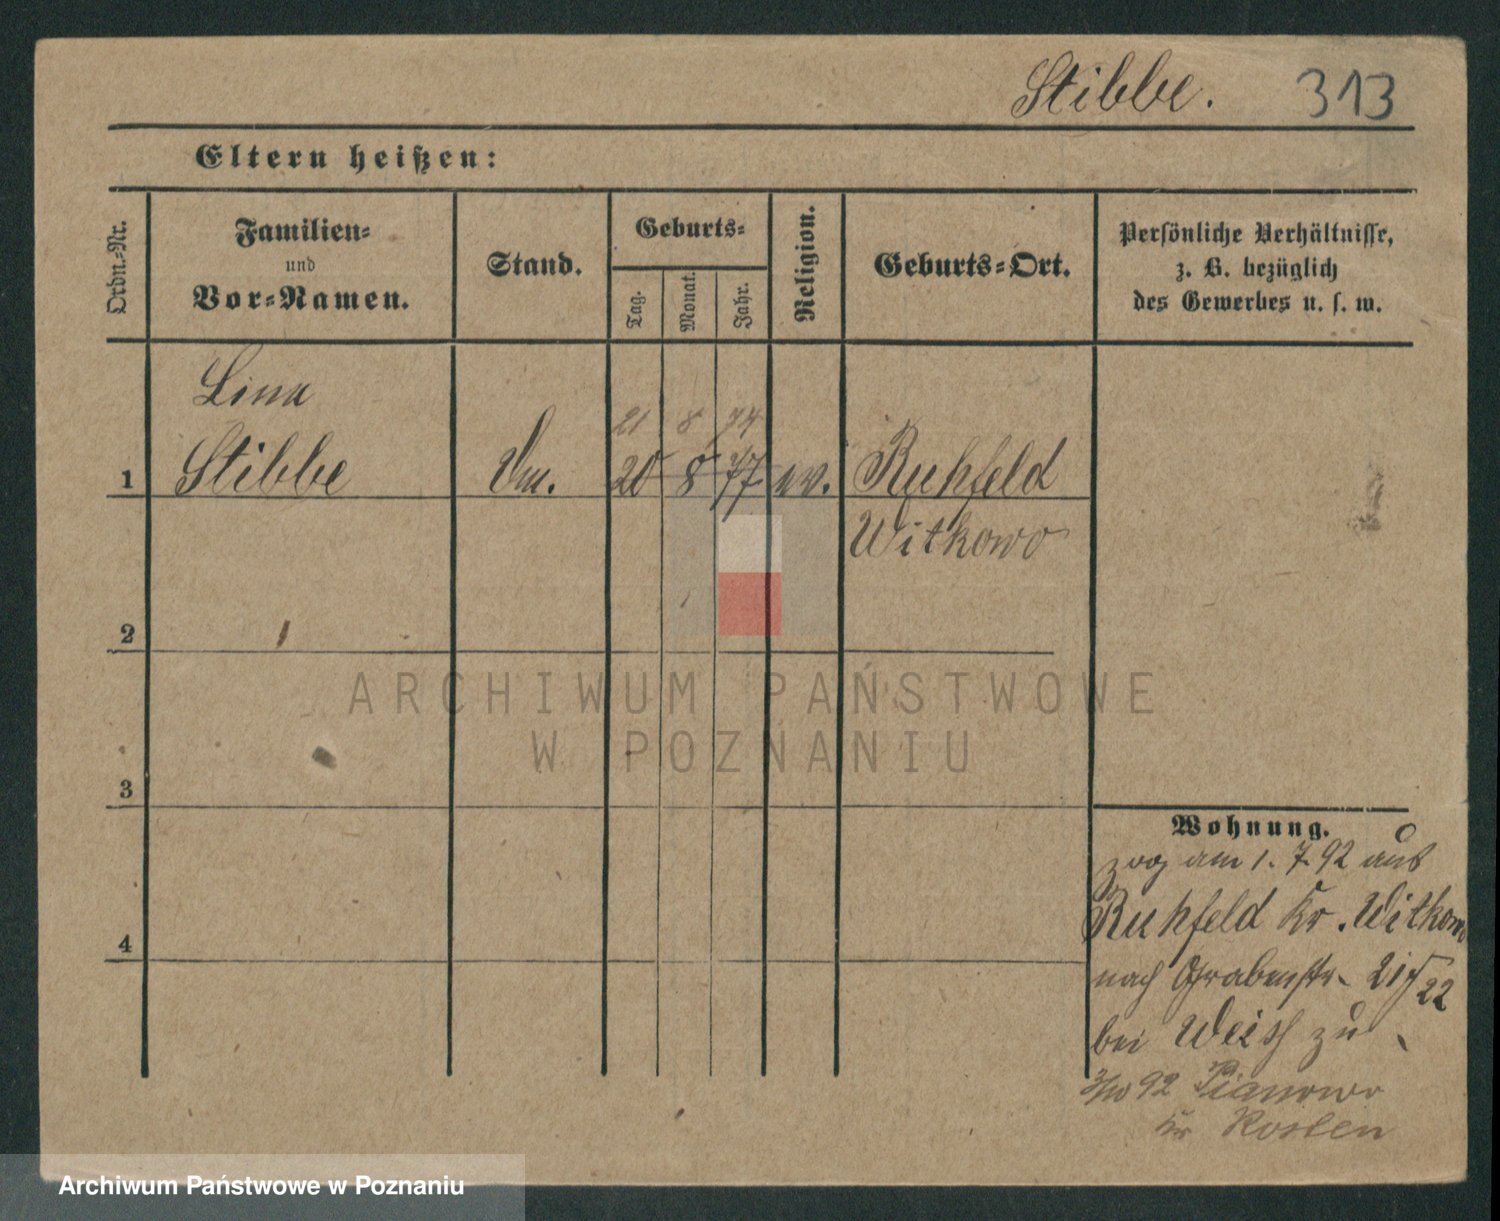 Stibbe. 313
Eltern heißen:
Ordn.-Nr.
Familien-
und
Vor-Namen.
Stand.
Geburts-
Tag.
Monat.
Jahr.
Religion.
Geburts-Ort.
Persönliche Verhältnisse,
z. B. bezüglich
des Gewerbes u. s. w.
Lina
21 8 74
1 Stibbe 20 8 77 ev. Ruhfeld
Witkowo
2
3
4
Wohnung.
zog am 1. 7. 92 aus
Ruhfeld Kr. Witkowo
nach Grabenstr. 21/22
bei Weiß zu
92 Pianowo
Kr Kosten
ARCHIWUM PAŃSTWOWE
W POZNANIU
Archiwum Państwowe w Poznaniu